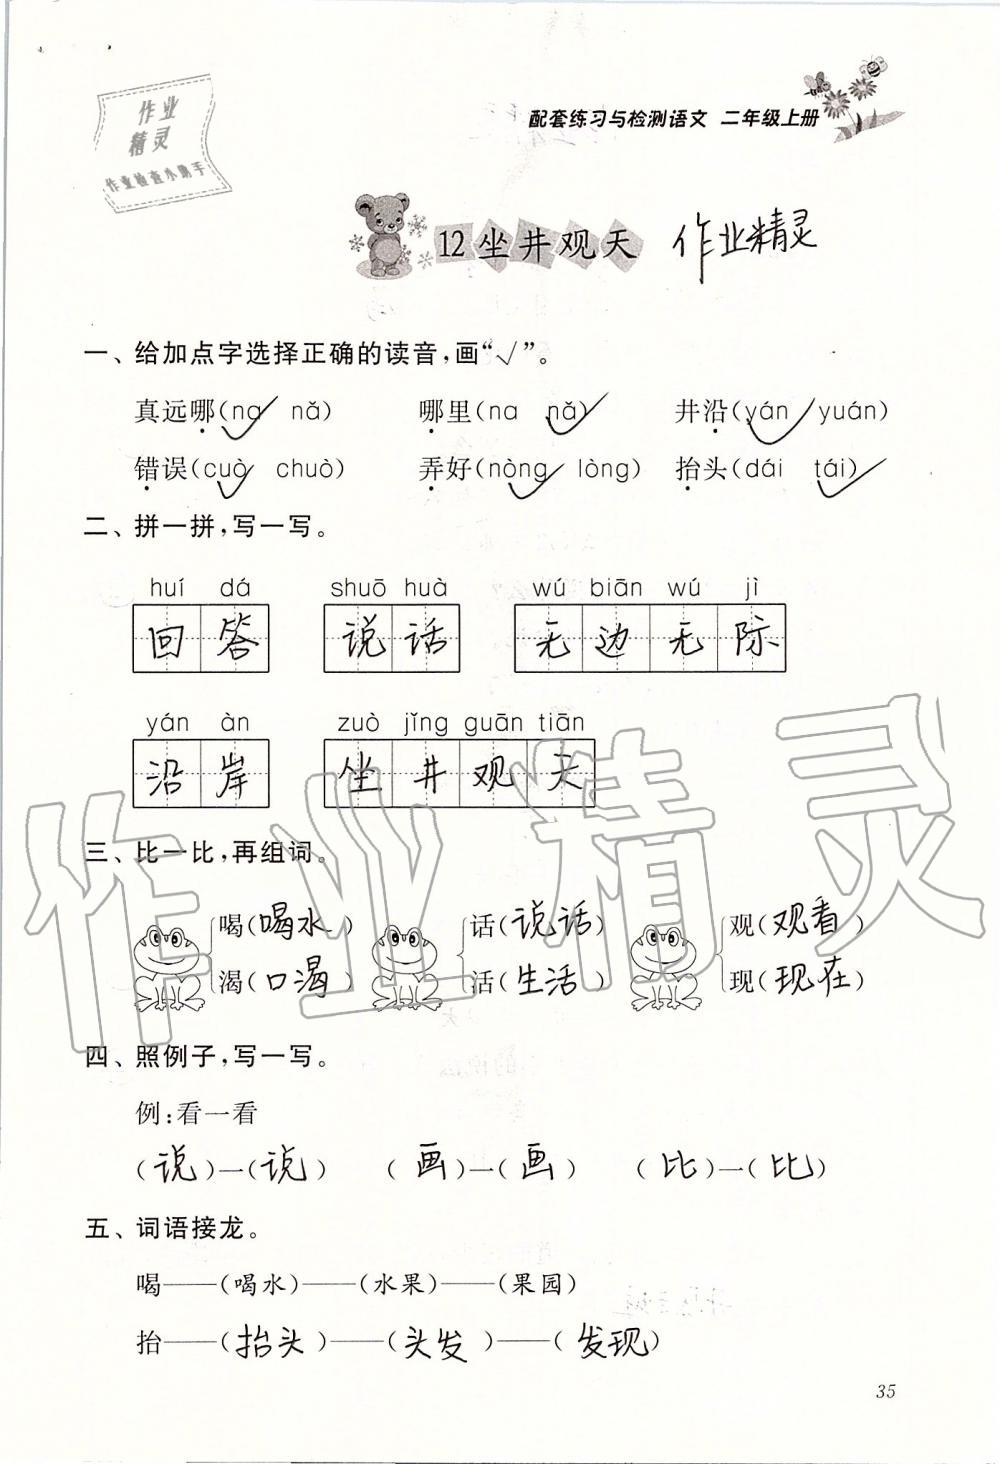 作业
精灵
作业检查小助手
配套练习与检测语文 二年级上册
12 坐井观天 作业精灵
一、给加点字选择正确的读音,画“√”。
真远哪(na√ nǎ) 哪里(na nǎ√) 井沿(yán√ yuán)
错误(cuò√ chuò) 弄好(nòng√ lòng) 抬头(dái tái√)
二、拼一拼,写一写。
huí dá shuō huà wú biān wú jì
回答 说话 无边无际
yán àn zuò jǐng guān tiān
沿岸 坐井观天
三、比一比,再组词。
喝(喝水) 话(说话) 观(观看)
渴(口渴) 活(生活) 现(现在)
四、照例子,写一写。
例:看一看
(说)一(说) (画)一(画) (比)一(比)
五、词语接龙。
喝——(喝水)——(水果)——(果园)
抬——(抬头)——(头发)——(发现)
35
作业精灵